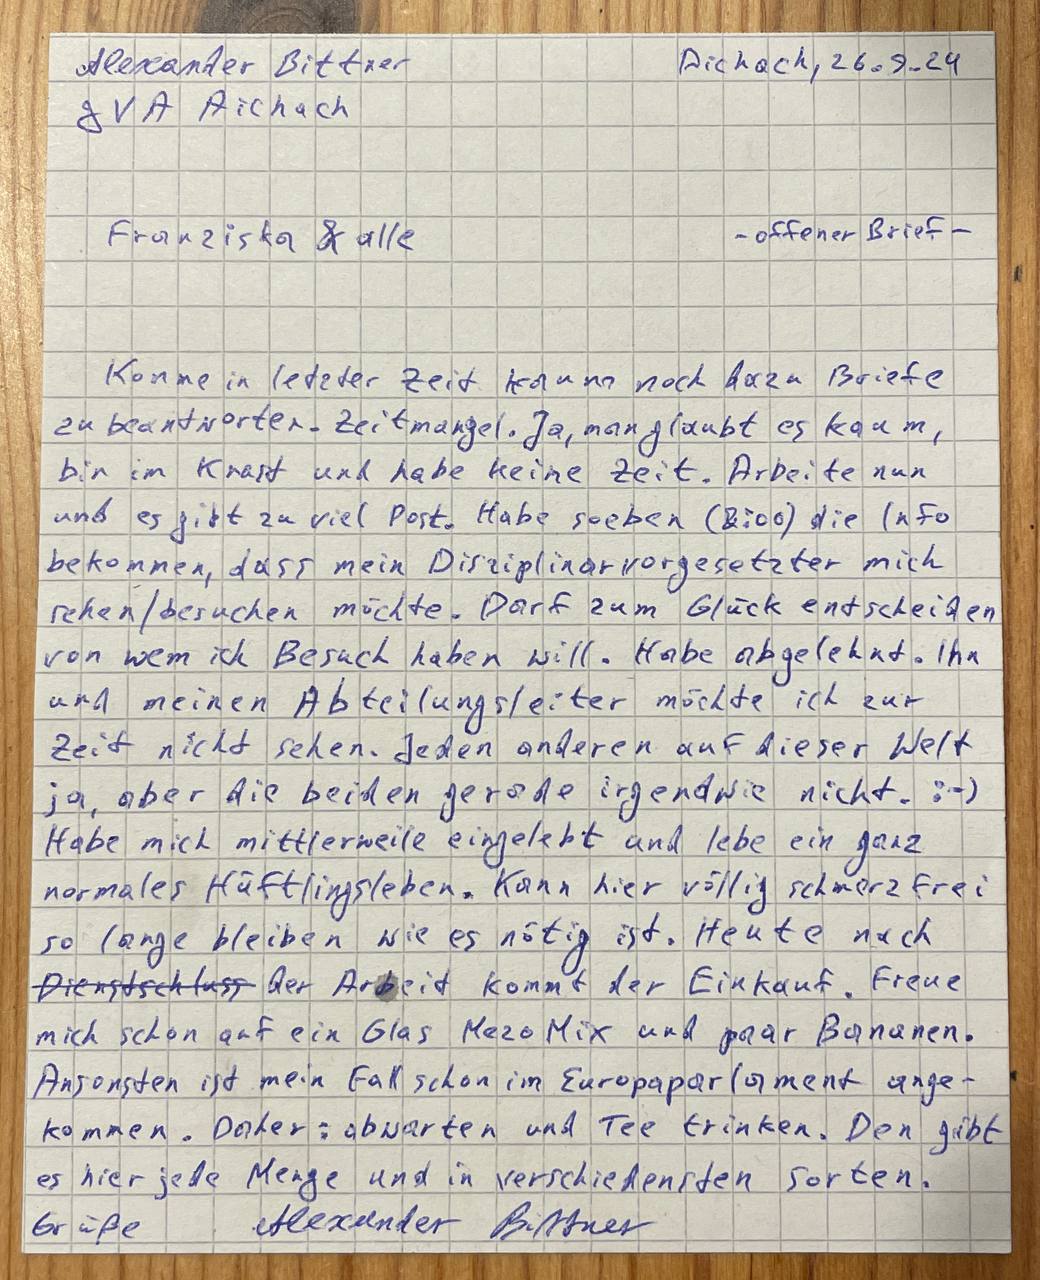 Alexander Bittner
Aichach, 26.9.24
JVA Aichach
Franziska & alle
-offener Brief-
Komme in letzter Zeit kaum noch dazu Briefe
zu beantworten. Zeitmangel. Ja, man glaubt es kaum,
bin im Knast und habe keine Zeit. Arbeite nun
und es gibt zu viel Post. Habe soeben (8:00) die Info
bekommen, dass mein Disziplinarvorgesetzter mich
sehen/besuchen möchte. Darf zum Glück entscheiden
von wem ich Besuch haben will. Habe abgelehnt. Ihn
und meinen Abteilungsleiter möchte ich zur
Zeit nicht sehen. Jeden anderen auf dieser Welt
ja, aber die beiden gerade irgendwie nicht. :-)
Habe mich mittlerweile eingelebt und lebe ein ganz
normales Häftlingsleben. Kann hier völlig schmerzfrei
so lange bleiben wie es nötig ist. Heute nach
Dienstschluss der Arbeit kommt der Einkauf. Freue
mich schon auf ein Glas MezoMix und paar Bananen.
Ansonsten ist mein Fall schon im Europaparlament ange-
kommen. Daher: abwarten und Tee trinken. Den gibt
es hier jede Menge und in verschiedensten Sorten.
Grüße Alexander Bittner